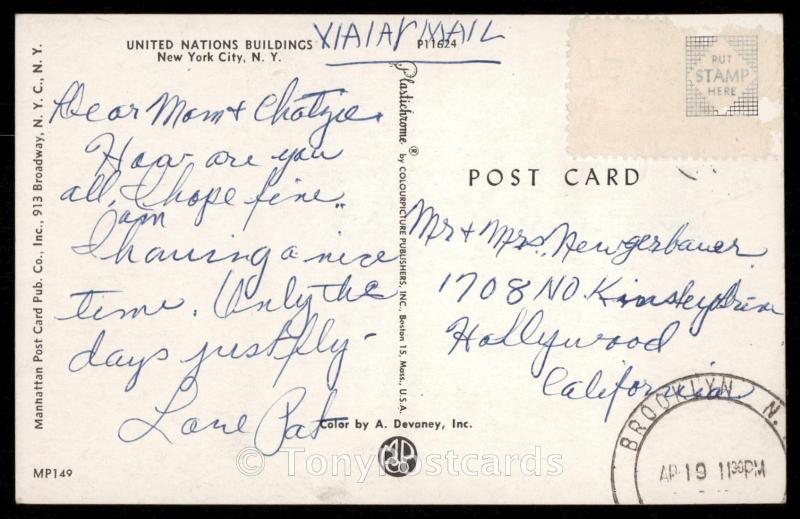 UNITED NATIONS BUILDINGS
New York City, N. Y.
VIA AIR MAIL
P11624
PUT
STAMP
HERE
Dear Mom &
How are you
all, I hope fine..
am
I having a nice
time. Only the
days just fly -
Love Pat
Manhattan Post Card Pub. Co., Inc., 913 Broadway, N. Y. C., N. Y.
Plastichrome ® by COLOURPICTURE PUBLISHERS, INC., Boston 15, Mass., U.S.A.
POST CARD
Mr & Mrs. Newgerbauer
1708 NO.
Hollywood
California
BROOKLYN N.
AP 19 11 30 PM
Color by A. Devaney, Inc.
MP149
© TonyPostcards